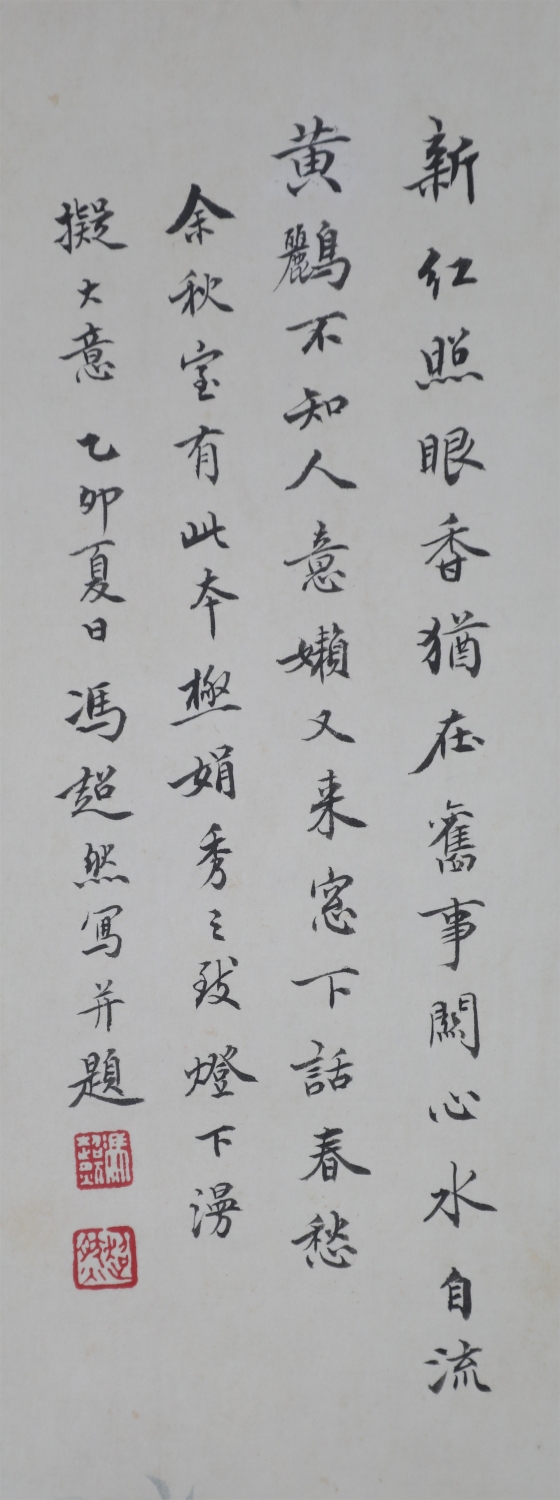 新红照眼香猶在舊事関心水自流
黄鸝不知人意嬾又来窓下話春愁
余秋室有此本極娟秀之致燈下漫
擬大意 乙卯夏日 馮超然寫并題
馮超然
超然